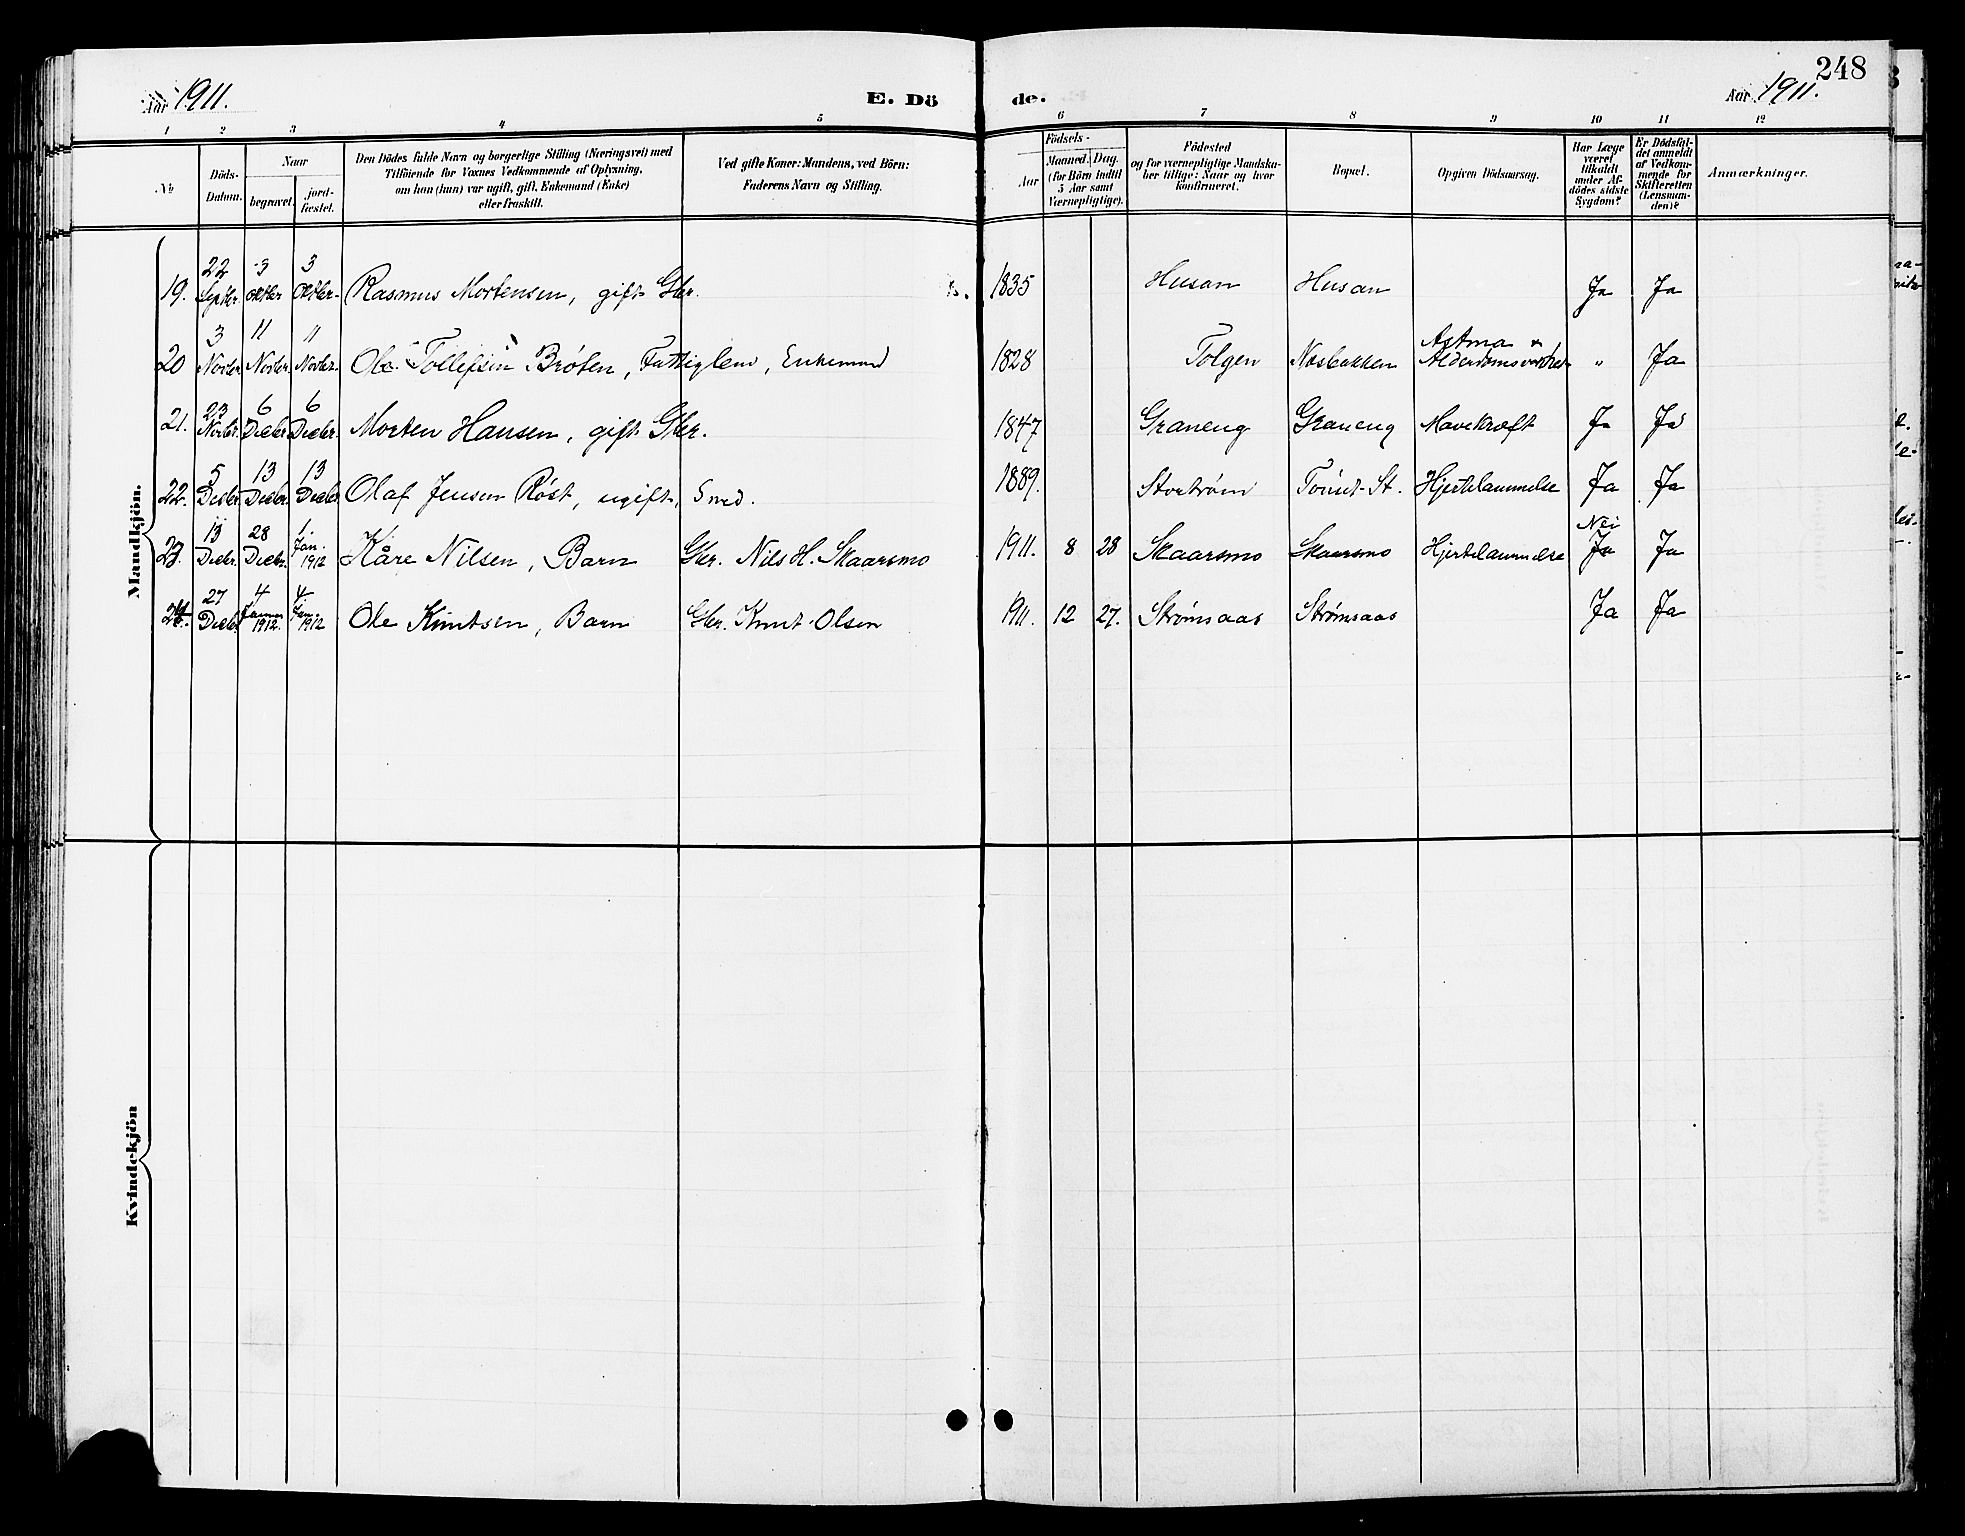 Aar 1911.
E. Dö
de.
248
Aar 1911.
1 2 3 4 5 6 7 8 9 10 11 12
No
Döds-
Datum.
Naar
begravet.
jord-
fæstet.
Den Dödes fulde Navn og borgerlige Stilling (Næringsvei) med
Tilföiende for Voxnes Vedkommende af Oplysning,
om han (hun) var ugift, gift, Enkemand (Enke)
eller fraskilt.
Ved gifte Koner: Mandens, ved Börn:
Faderens Navn og Stilling.
Födsels-
Aar
Maaned. Dag.
(for Börn indtil
5 Aar samt
Værnepligtige).
Födested
og for værnepligtige Mandska-
ber tillige: Naar og hvor
konfirmeret.
Bopæl.
Opgiven Dödsaarsag.
Har Læge
været
tilkaldt
under Af-
dödes sidste
Sygdom?
Er Dödsfal-
det anmeldt
af Vedkom-
mende for
Skifteretten
(Lensman-
den)?
Anmærkninger.
Mandkjön.
19. 22 Septbr. 3 Oktbr 3 Oktbr. Rasmus Mortensen, gift Gbr. 1835 Husan Husan Ja Ja
20 3 Novbr. 11 Novbr. 11 Novbr. Ole Tollefsen Bröten, Fattiglem, Enkemand 1828 Tolgen Næsbakken Astma & " Ja
21. 23 Novbr. 6 Decbr. 6 Decbr. Morten Hansen, gift Gbr. 1847 Graneng Graneng Mavekræft Ja Ja
22. 5 Decbr. 13 Decbr. 13 Decbr Olaf Jensen Röst, ugift, Smed. 1889. Storström Tönset-St. Hjertelammelse Ja Ja
23. 13 Decbr. 28 Decbr. 1 Jan. 1912 Kåre Nilsen, Barn Gbr. Nils H. Skaarsmo 1911. 8 28 Skaarsmo Skaarsmo Hjertelammelse Nei Ja Ja
24. 27 Decbr 4 Januar 1912. 4 Jan. 1912 Ole Knutsen, Barn Gbr. Knut Olsen 1911. 12 27. Strømsaas Strømsaas Ja Ja
Kvindekjön